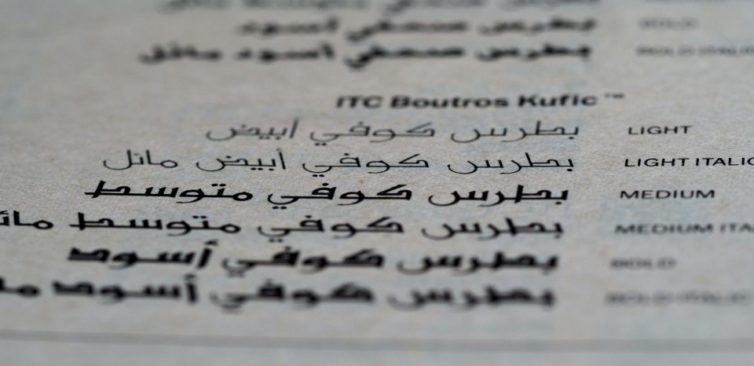 بطرس صحفي أسود
BOLD
بطرس صحفي أسود مائل
BOLD ITALIC
ITC Boutros Kufic™
بطرس كوفي أبيض LIGHT
بطرس كوفي أبيض مائل LIGHT ITALIC
بطرس كوفي متوسط MEDIUM
بطرس كوفي متوسط MEDIUM
بطرس كوفي أسود BOLD
بطرس كوفي أسود BOLD ITALIC